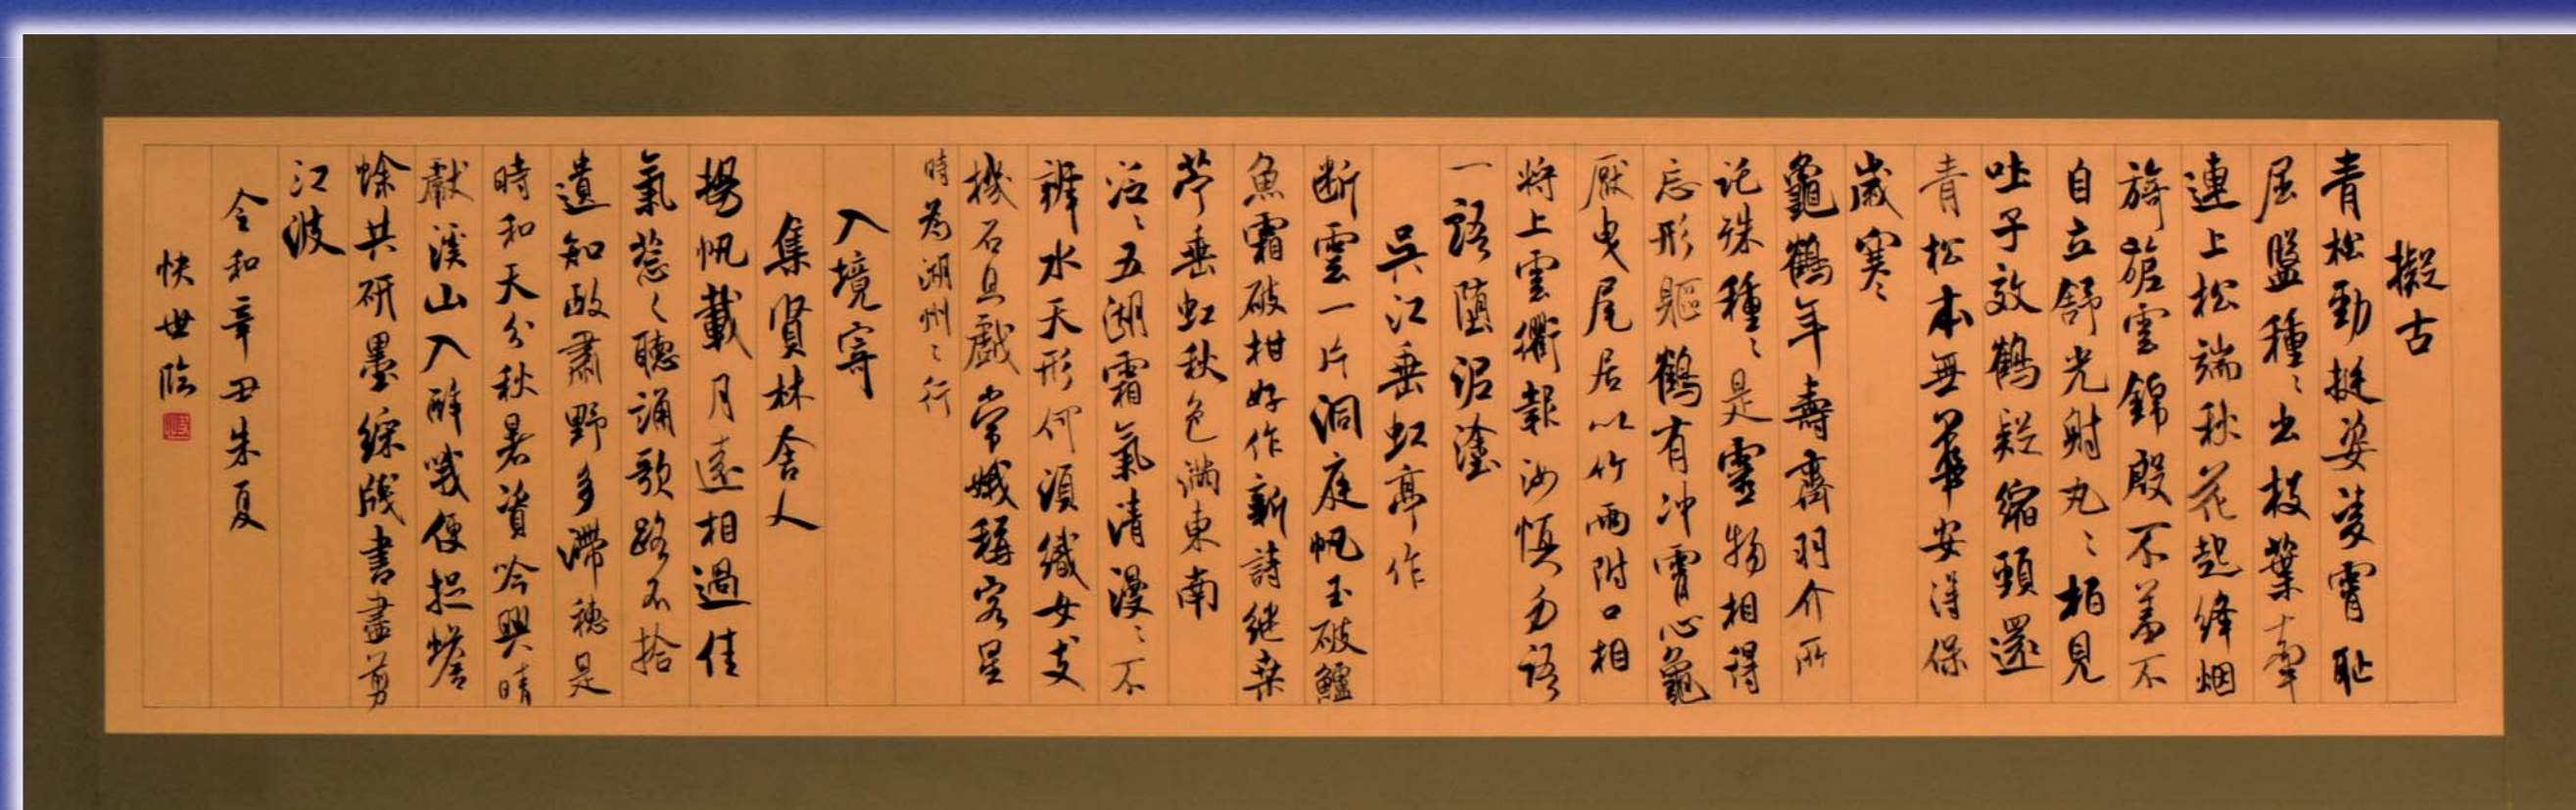 擬古
青松勁挺姿凌霄耻
屈盤種〻出枝葉牽
連上松端秋花起絳烟
旖旎雲錦殷不羞不
自立舒光射丸〻柏見
吐子效鶴疑縮頸還
青松本無華安得保
歲寒〻
龜鶴年壽齊羽介所
託殊種〻是靈物相得
忘形軀鶴有冲霄心龜
厭曳尾居以竹兩附口相
將上雲衢報汝慎勿語
一語墮泥塗
吳江垂虹亭作
断雲一片洞庭帆玉破鱸
魚霜破柑好作新詩継桒
苧垂虹秋色滿東南
泛〻五湖霜氣清漫〻不
辨水天形何須織女支
機石且戲常娥稱客星
時為湖州〻行
入境寄
集賢林舍人
揚帆載月遠相過佳
氣蔥〻聽誦歌路不拾
遺知政肅野多滯穗是
時和天分秋暑資吟興晴
獻溪山入醉哦便捉蟾
蜍共研墨綵牋書盡剪
江波
令和辛丑朱夏
快世臨